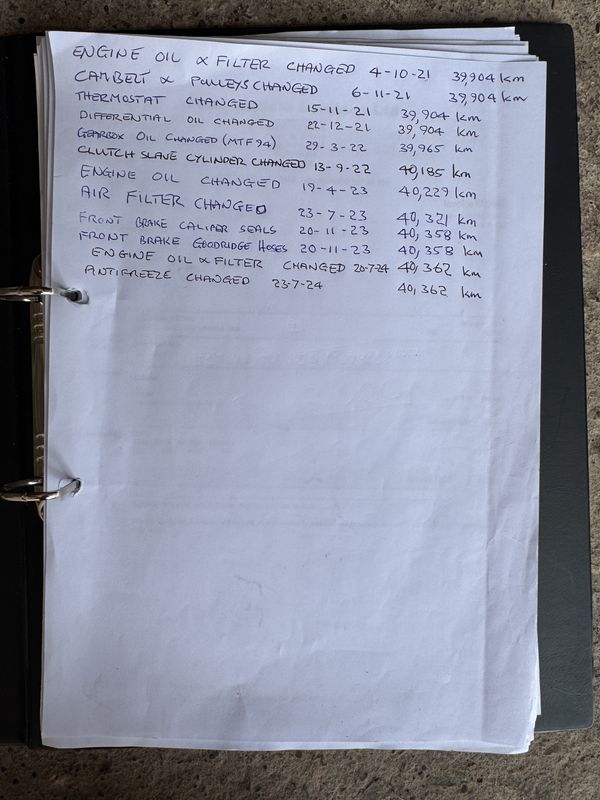 ENGINE OIL & FILTER CHANGED 4-10-21 39,904 km
CAMBELT & PULLEYS CHANGED 6-11-21 39,904 km
THERMOSTAT CHANGED 15-11-21 39,904 km
DIFFERENTIAL OIL CHANGED 22-12-21 39,904 km
GEARBOX OIL CHANGED (MTF94) 29-3-22 39,965 km
CLUTCH SLAVE CYLINDER CHANGED 13-9-22 40,185 km
ENGINE OIL CHANGED 19-4-23 40,229 km
AIR FILTER CHANGED 23-7-23 40,321 km
FRONT BRAKE CALIPER SEALS 20-11-23 40,358 km
FRONT BRAKE GOODRIDGE HOSES 20-11-23 40,358 km
ENGINE OIL & FILTER CHANGED 20-7-24 40,362 km
ANTIFREEZE CHANGED 23-7-24 40,362 km